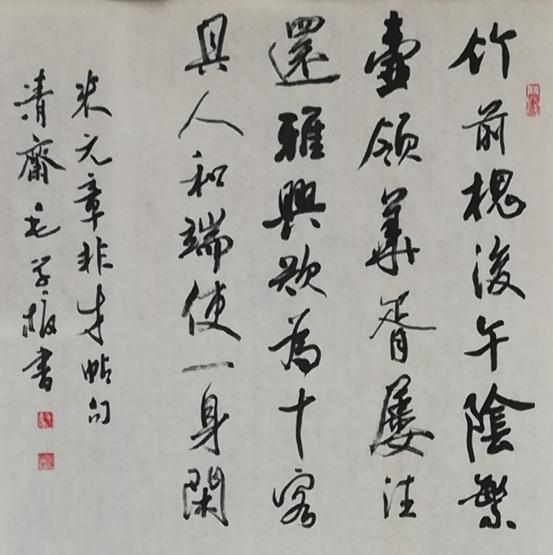 竹前槐後午陰繁
壺領華胥屢往
還雅興欲為十客
具人和端使一身閑
米元章非才帖句
清齋毛学振書